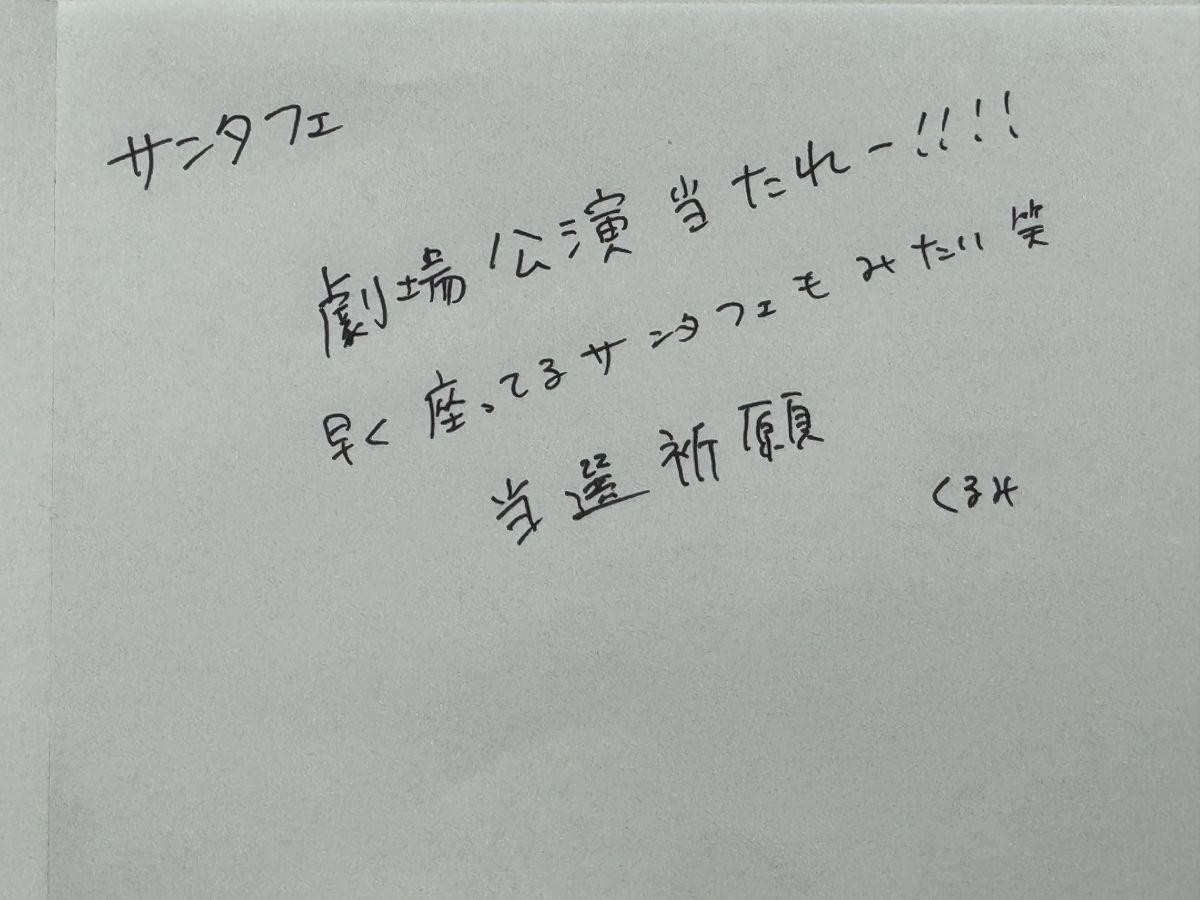 サンタフェ
劇場公演当たれー!!!!
早く座ってるサンタフェもみたい笑
当選祈願
くるみ